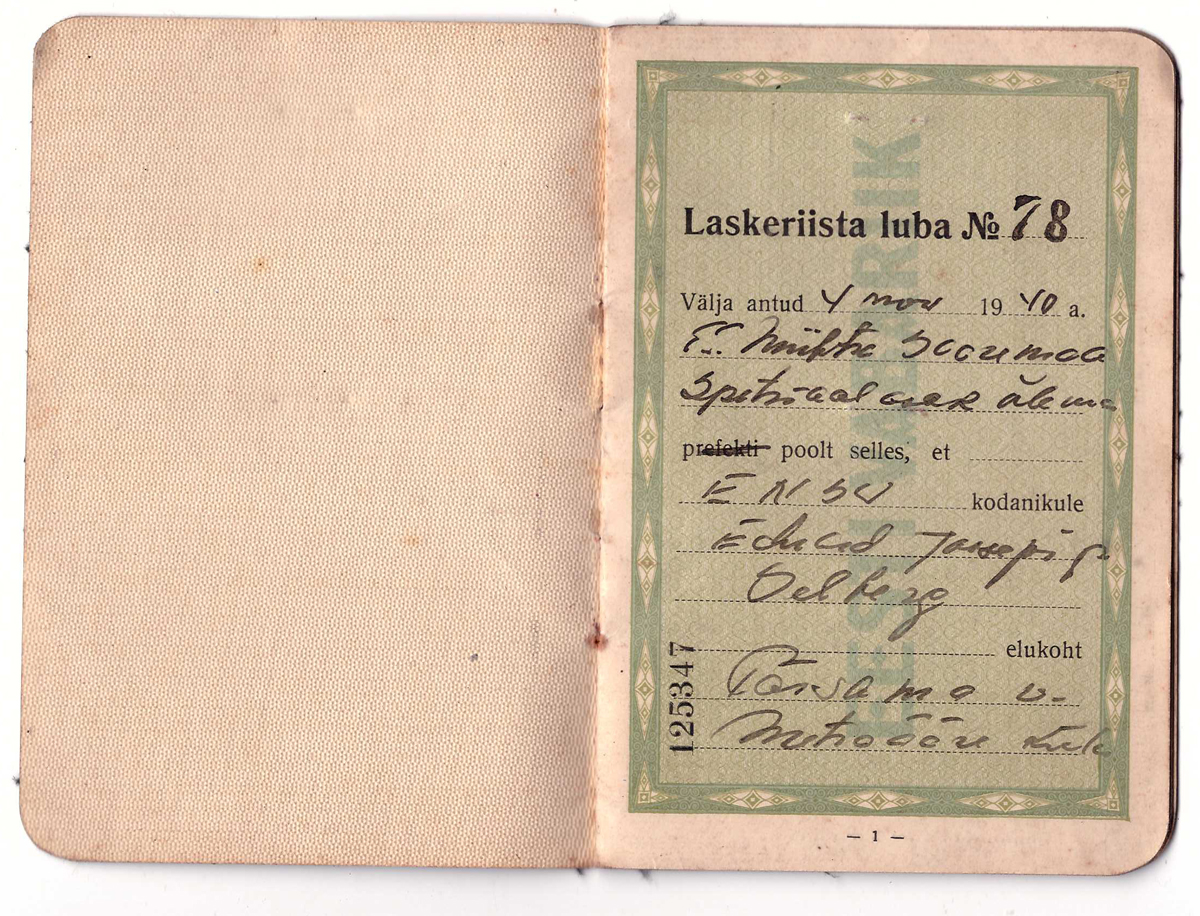 EESTI VABARIIK
Laskeriista luba № 78
Välja antud 4 nov 1940 a.
Saaremaa
Spetsiaal
prefekti poolt selles, et
ENSV kodanikule
Eduard Joosepi p.
Oelberg
elukoht
Pärsama v.
Metsaääre küla
125347
— 1 —